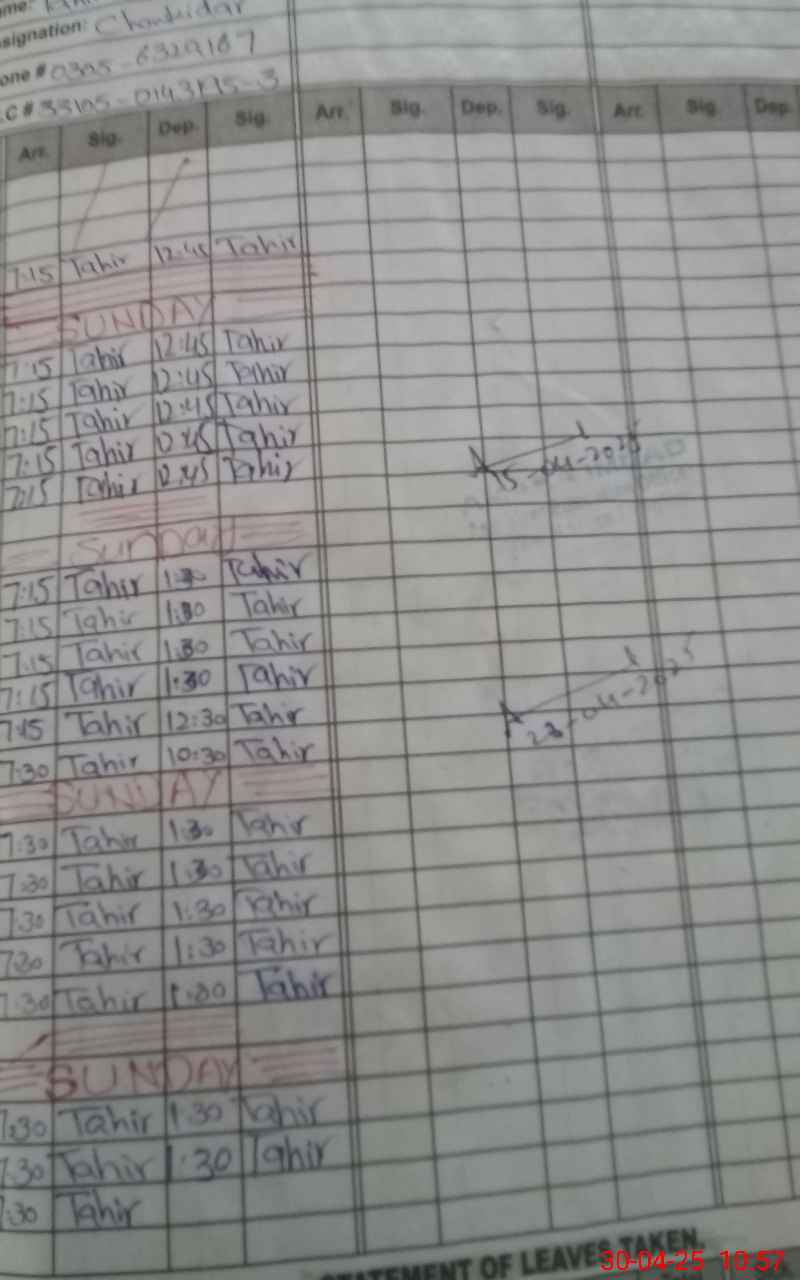 me:
signation: Chowkidar
one #
C #
Arr. Sig. Dep. Sig. Arr. Sig. Dep. Sig. Arr. Sig. Dep.
7:15 Tahir 12:45 Tahir
SUNDAY
7:15 Tahir 12:45 Tahir
7:15 Tahir 12:45 Tahir
7:15 Tahir 12:45 Tahir
7:15 Tahir 12:45 Tahir
7:15 Tahir 12:45 Tahir
15-04-2025
SUNDAY
7:15 Tahir 1:30 Tahir
7:15 Tahir 1:30 Tahir
7:15 Tahir 1:30 Tahir
7:15 Tahir 1:30 Tahir
7:15 Tahir 12:30 Tahir
23-04-2025
7:30 Tahir 10:30 Tahir
SUNDAY
7:30 Tahir 1:30 Tahir
7:30 Tahir 1:30 Tahir
7:30 Tahir 1:30 Tahir
7:30 Tahir 1:30 Tahir
7:30 Tahir 1:30 Tahir
SUNDAY
7:30 Tahir 1:30 Tahir
7:30 Tahir 1:30 Tahir
7:30 Tahir
STATEMENT OF LEAVES TAKEN.
30-04-25 10:57